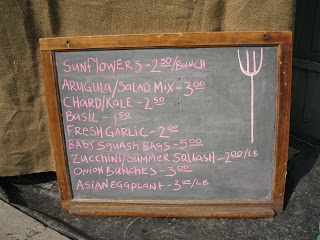 SUNFLOWERS - 2 50/BUNCH
ARUGULA/SALAD MIX - 3 00
CHARD/KALE - 2 50
BASIL - 1 50
FRESH GARLIC - 2 00
BABY SQUASH BAGS - 5 00
ZUCCHINI/SUMMER SQUASH - 2 00/LB
ONION BUNCHES - 3 00
ASIAN EGGPLANT - 3 00/LB